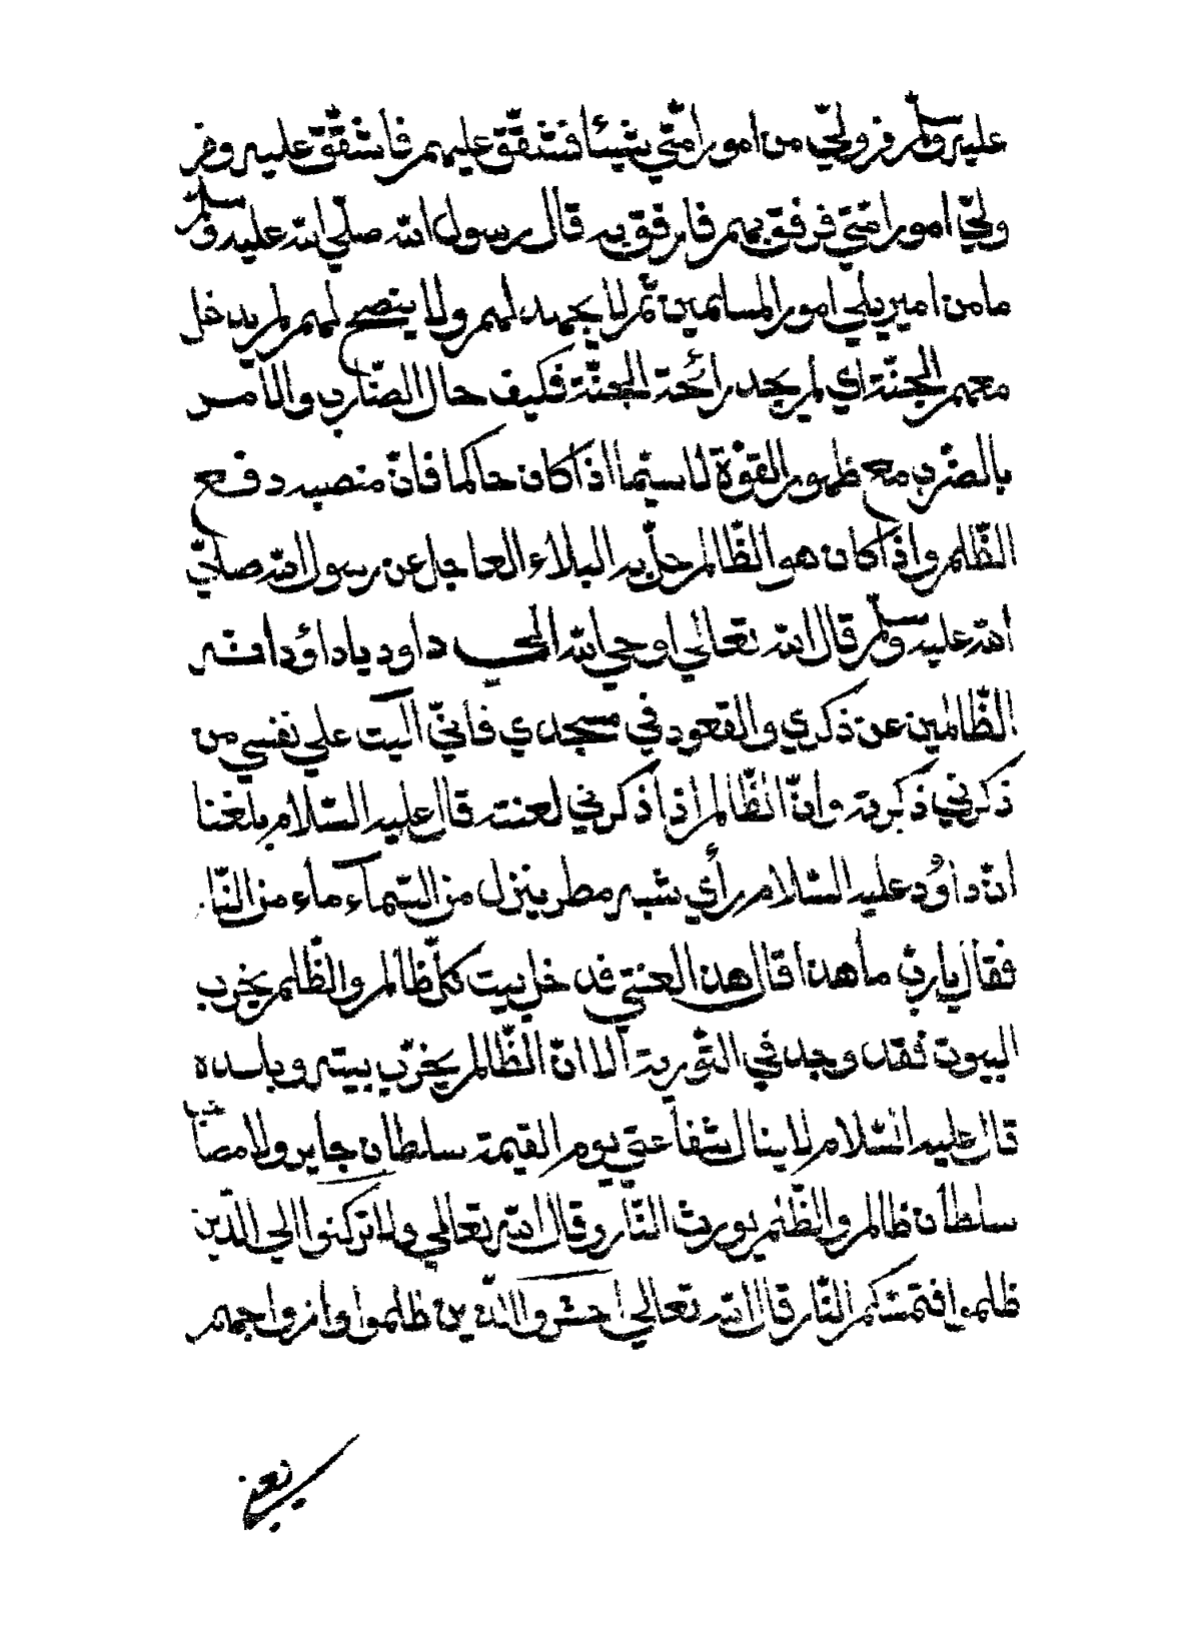 عليه وسلم من ولّي من امور امّتي شيئا فشقّق عليهم فاشقّق عليه ومن
ولّي امور امّتي فرفق بهم فارفق به قال رسول الله صلّي الله عليه وسلم
ما من امير يلي امور المسلمين ثمّ لا يجهد لهم ولا ينصح لهم لم يدخل
معهم الجنّة اي لم يجد رائحة الجنّة فكيف حال الضّارب والآمر
بالضّرب مع ظهور القوّة لا سيّما اذا كان حاكما فانّ منصبه دفع
الظّلم واذا كان هو الظّالم حلّ به البلاء العاجل عن رسول الله صلّي
الله عليه وسلم قال الله تعالي اوحي الله الي داود يا داؤد انه
الظّالمين عن ذكري والقعود في مسجدي فانّي آليت علي نفسي من
ذكرني ذكرته وانّ الظّالم اذا ذكرني لعنته قال عليه السّلام بلغنا
انّ داؤد عليه السّلام رأي شبه مطر ينزل من السّمآء ماء من النّار
فقال يا ربّ ما هذا قال هذا لعنتي قد خل بيت كلّ ظالم والظّلم يخرب
البيوت فقد وجد في التّورية الا انّ الظّالم يخرّب بيته وبلده
قال عليه السّلام لا ينال شفاعتي يوم القيمة سلطان جاير ولا مصاحب
سلطان ظالم والظّلم يورث النّار وقال الله تعالي ولا تركنوا الي الّذين
ظلموا فتمسّكم النّار قال الله تعالي احشروا الّذين ظلموا وازواجهم
يعني